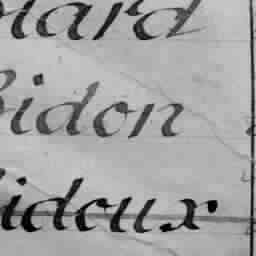 iard
Bidon
Bidoux